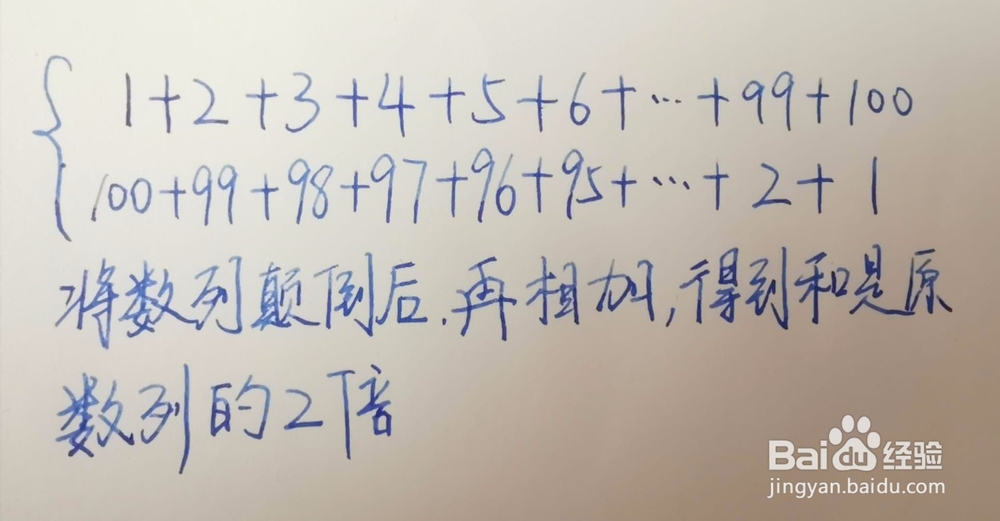 1+2+3+4+5+6+…+99+100
100+99+98+97+96+95+…+2+1
将数列颠倒后.再相加,得到和是原
数列的2倍
Baidu经验
jingyan.baidu.com